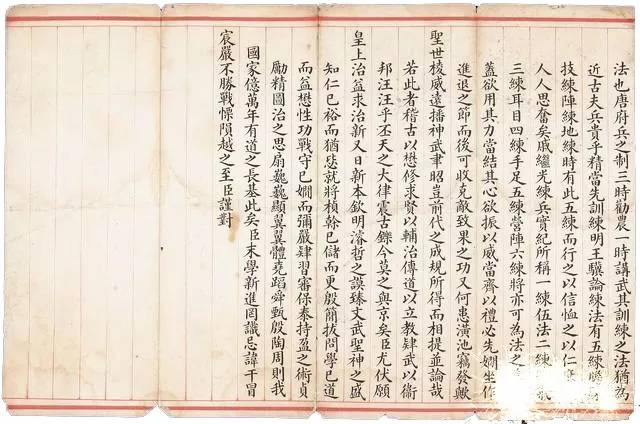 法也唐府兵之制三時勸農一時講武其訓練之法猶為
近古夫兵貴乎精當先訓練明王驥論練法有五練膽
技練陣練地練時有此五練而行之以信恤之以仁
人人思奮矣戚繼光練兵實紀所稱一練伍法二練
三練耳目四練手足五練營陣六練將亦可為法之
蓋欲用其力當結其心欲振以威當齊以禮必先嫻坐作
進退之節而後可收克敵致果之功又何患潢池竊發歟
聖世稜威遠播神武聿昭豈前代之成規所得而相提並論哉
若此者稽古以懋修求賢以輔治傳道以立教肄武以衞
邦汪汪乎丕天之大律震古鑠今莫之與京矣臣尤伏願
皇上治益求治新又日新本欽明濬哲之謨臻文武聖神之盛
知仁已裕而猶就將楨幹已儲而更殷簡拔問學已道
而益懋性功戰守已嫻而彌嚴肄習審保泰持盈之術貞
勵精圖治之思扇巍巍顯翼翼體堯蹈舜甄殷陶周則我
國家億萬年有道之長基此矣臣末學新進罔識忌諱干冒
宸嚴不勝戰慄隕越之至臣謹對